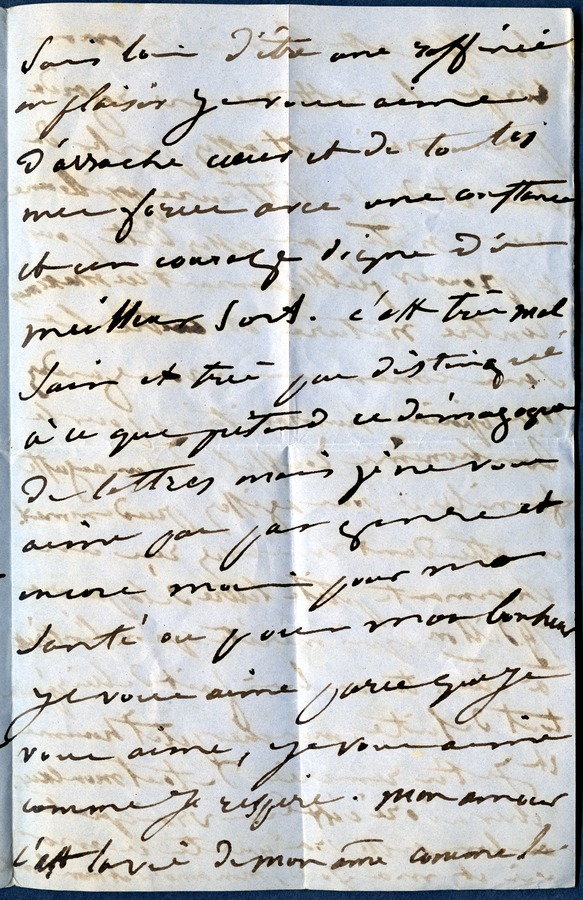 suis loin d'être une raffinée
en plaisir je vous aime
d'arrache cœur et de toutes
mes forces avec une constance
et un courage digne d'un
meilleur sort. c'est très mal
sain et très peu distingué
à ce que prétend ce démagogue
de lettres mais je ne vous
aime pas par genre et
encore moins pour ma
santé ou pour mon bonheur
je vous aime parce que je
vous aime, je vous aime
comme je respire. mon amour
c'est la vie de mon âme comme le